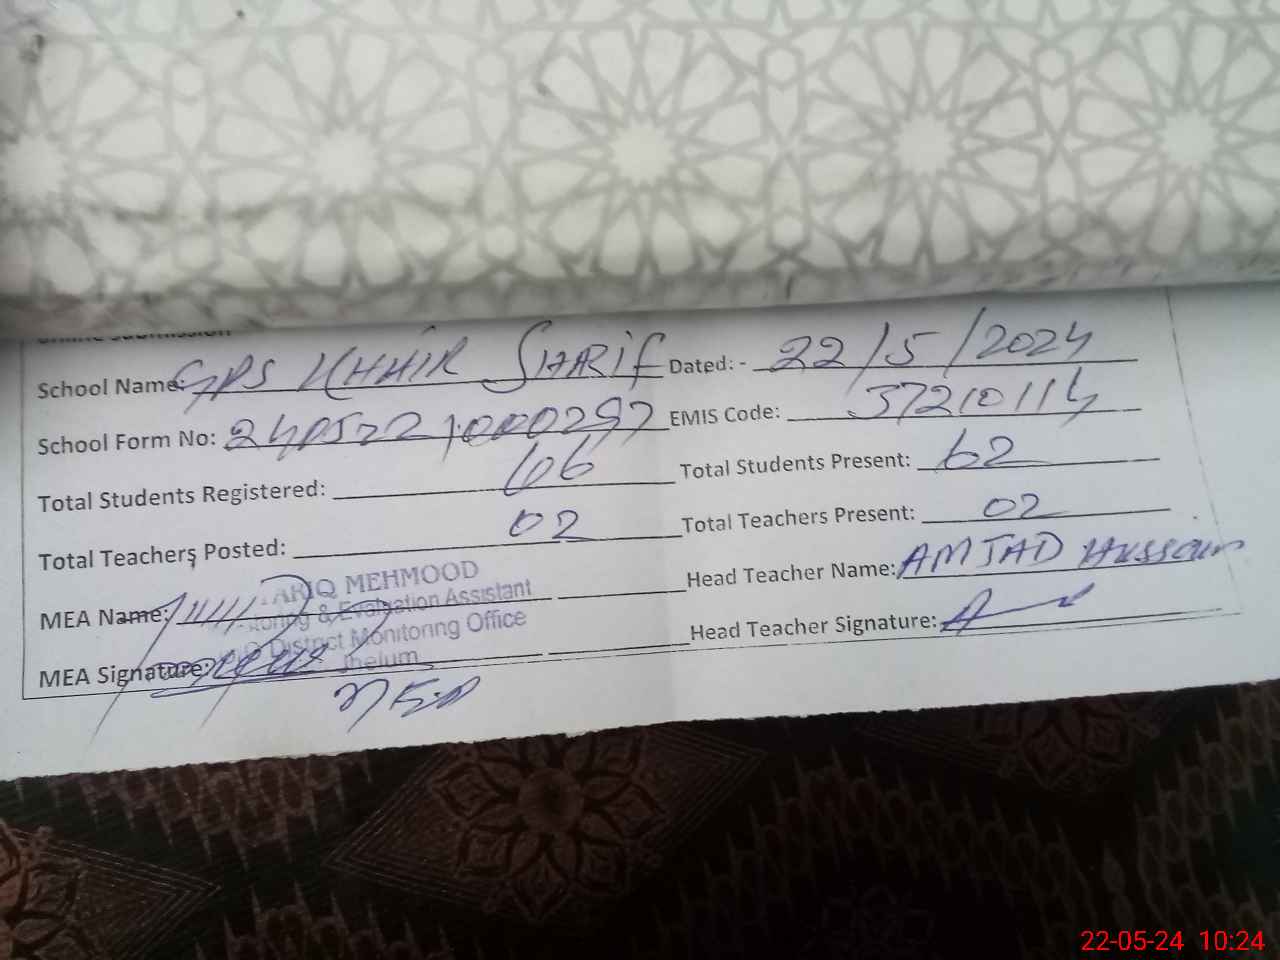 Online Submission
School Name: GPS KHHIR SHARIF Dated: - 22/5/2024
School Form No: EMIS Code: 37210114
Total Students Registered: 66 Total Students Present: 62
Total Teachers Posted: 02 Total Teachers Present: 02
MEA Name: Head Teacher Name: AMJAD Hussain
MEA Signature: Head Teacher Signature:
TARIQ MEHMOOD
Monitoring & Evaluation Assistant
District Monitoring Office
Jhelum
22-05-24 10:24